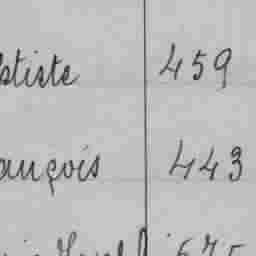 ptiste 459
ançois 443